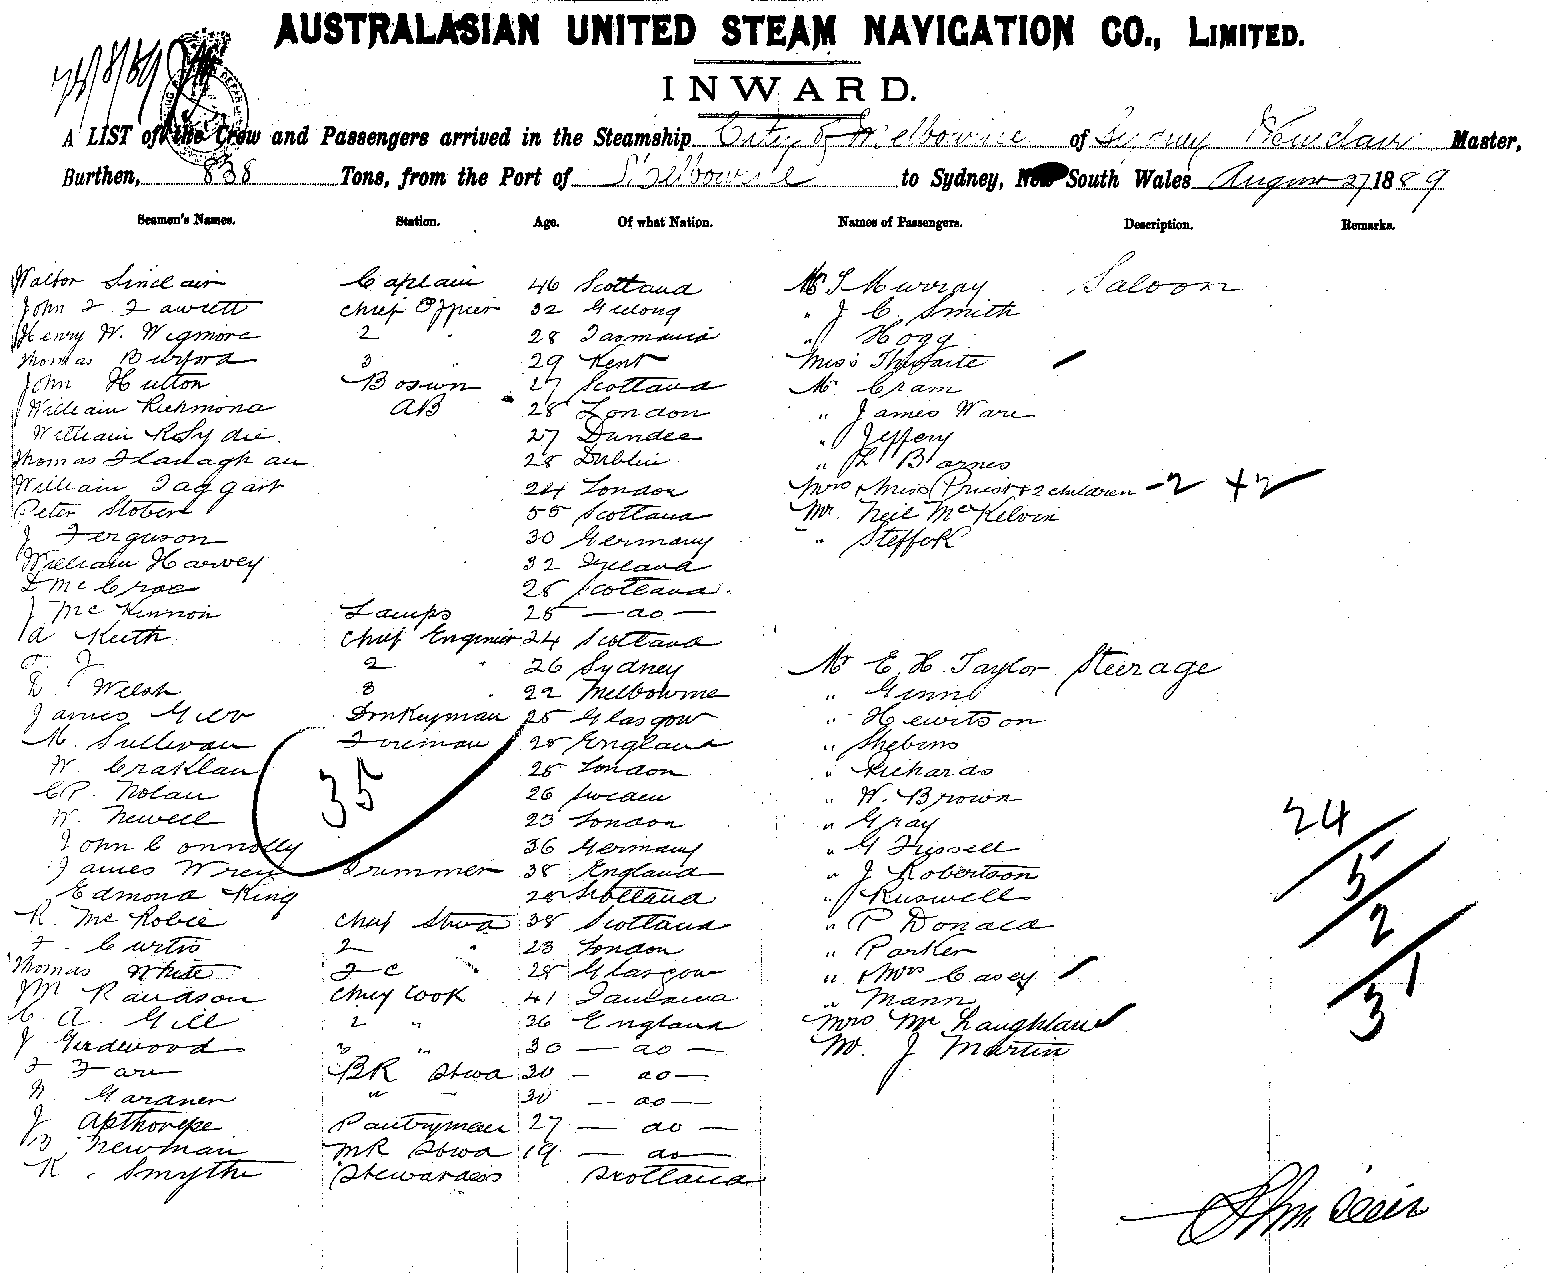 AUSTRALASIAN UNITED STEAM NAVIGATION CO., LIMITED.
INWARD.
A LIST of the Crew and Passengers arrived in the Steamship City of Melbourne of Sydney Master,
Burthen, 838 Tons, from the Port of Melbourne to Sydney, New South Wales August 27 1889
Seamen's Names. Station. Age. Of what Nation. Names of Passengers. Description. Remarks.
Walter Sinclair Captain 46 Scotland Mr Murray Saloon
John F Fawcett Chief Officer 32 Geelong " J C Smith
Henry W. Wigmore 2 " 28 Tasmania " Hogg
Thomas Burford 3 " 29 Kent Miss Thwaite
John Hutton Bosun 27 Scotland Mr Cram
William Richmond AB 28 London " James Ware
William 27 Dundee " Jeffery
Thomas Flanaghan 28 Dublin " L Barnes
William Taggart 24 London Mrs & Miss Priest & 2 children - 2 + 2
Peter Stobert 55 Scotland Mr. Neil McKelvin
J Ferguson 30 Germany " Steffok
William Harvey 32 Ireland
D McCrae 28 Scotland.
J McKinnon Lamps 25 — do —
A Keith Chief Engineer 24 Scotland
2 " 26 Sydney Mr E. H. Taylor Steerage
D. Welsh 3 " 22 Melbourne " Ginn
James Gibb Donkeyman 25 Glasgow " Hewitson
M. Sullivan Foreman 28 England " Shebins
W. Craklan 25 London " Richards
C P. Nolan 35 26 Sweden " W. Brown
W. Newell 23 London " Gray
24
John Connolly 36 Germany " G Fussell
James Wren Trimmer 38 England " J Robertson
5
Edmond King 28 Scotland " Ruswell
R. McRobie Chief Stwd 38 Scotland " P Donald
2
F. Curtis 2 " 23 London " Parker
Thomas White F C 28 Glasgow " & Mrs Casey
1
M Davidson Chief Cook 41 " Mann
3
C A. Gill 2 " 26 England Mrs McLaughlan
J Girdwood 3 " 30 — do — Mr. J Martin
F Farr BR Stwd 30 — do —
W Gardner " " 30 — do —
J Apthorpe Pantryman 27 — do —
B Newman MR Stwd 19 — do —
K. Smythe Stewardess Scotland